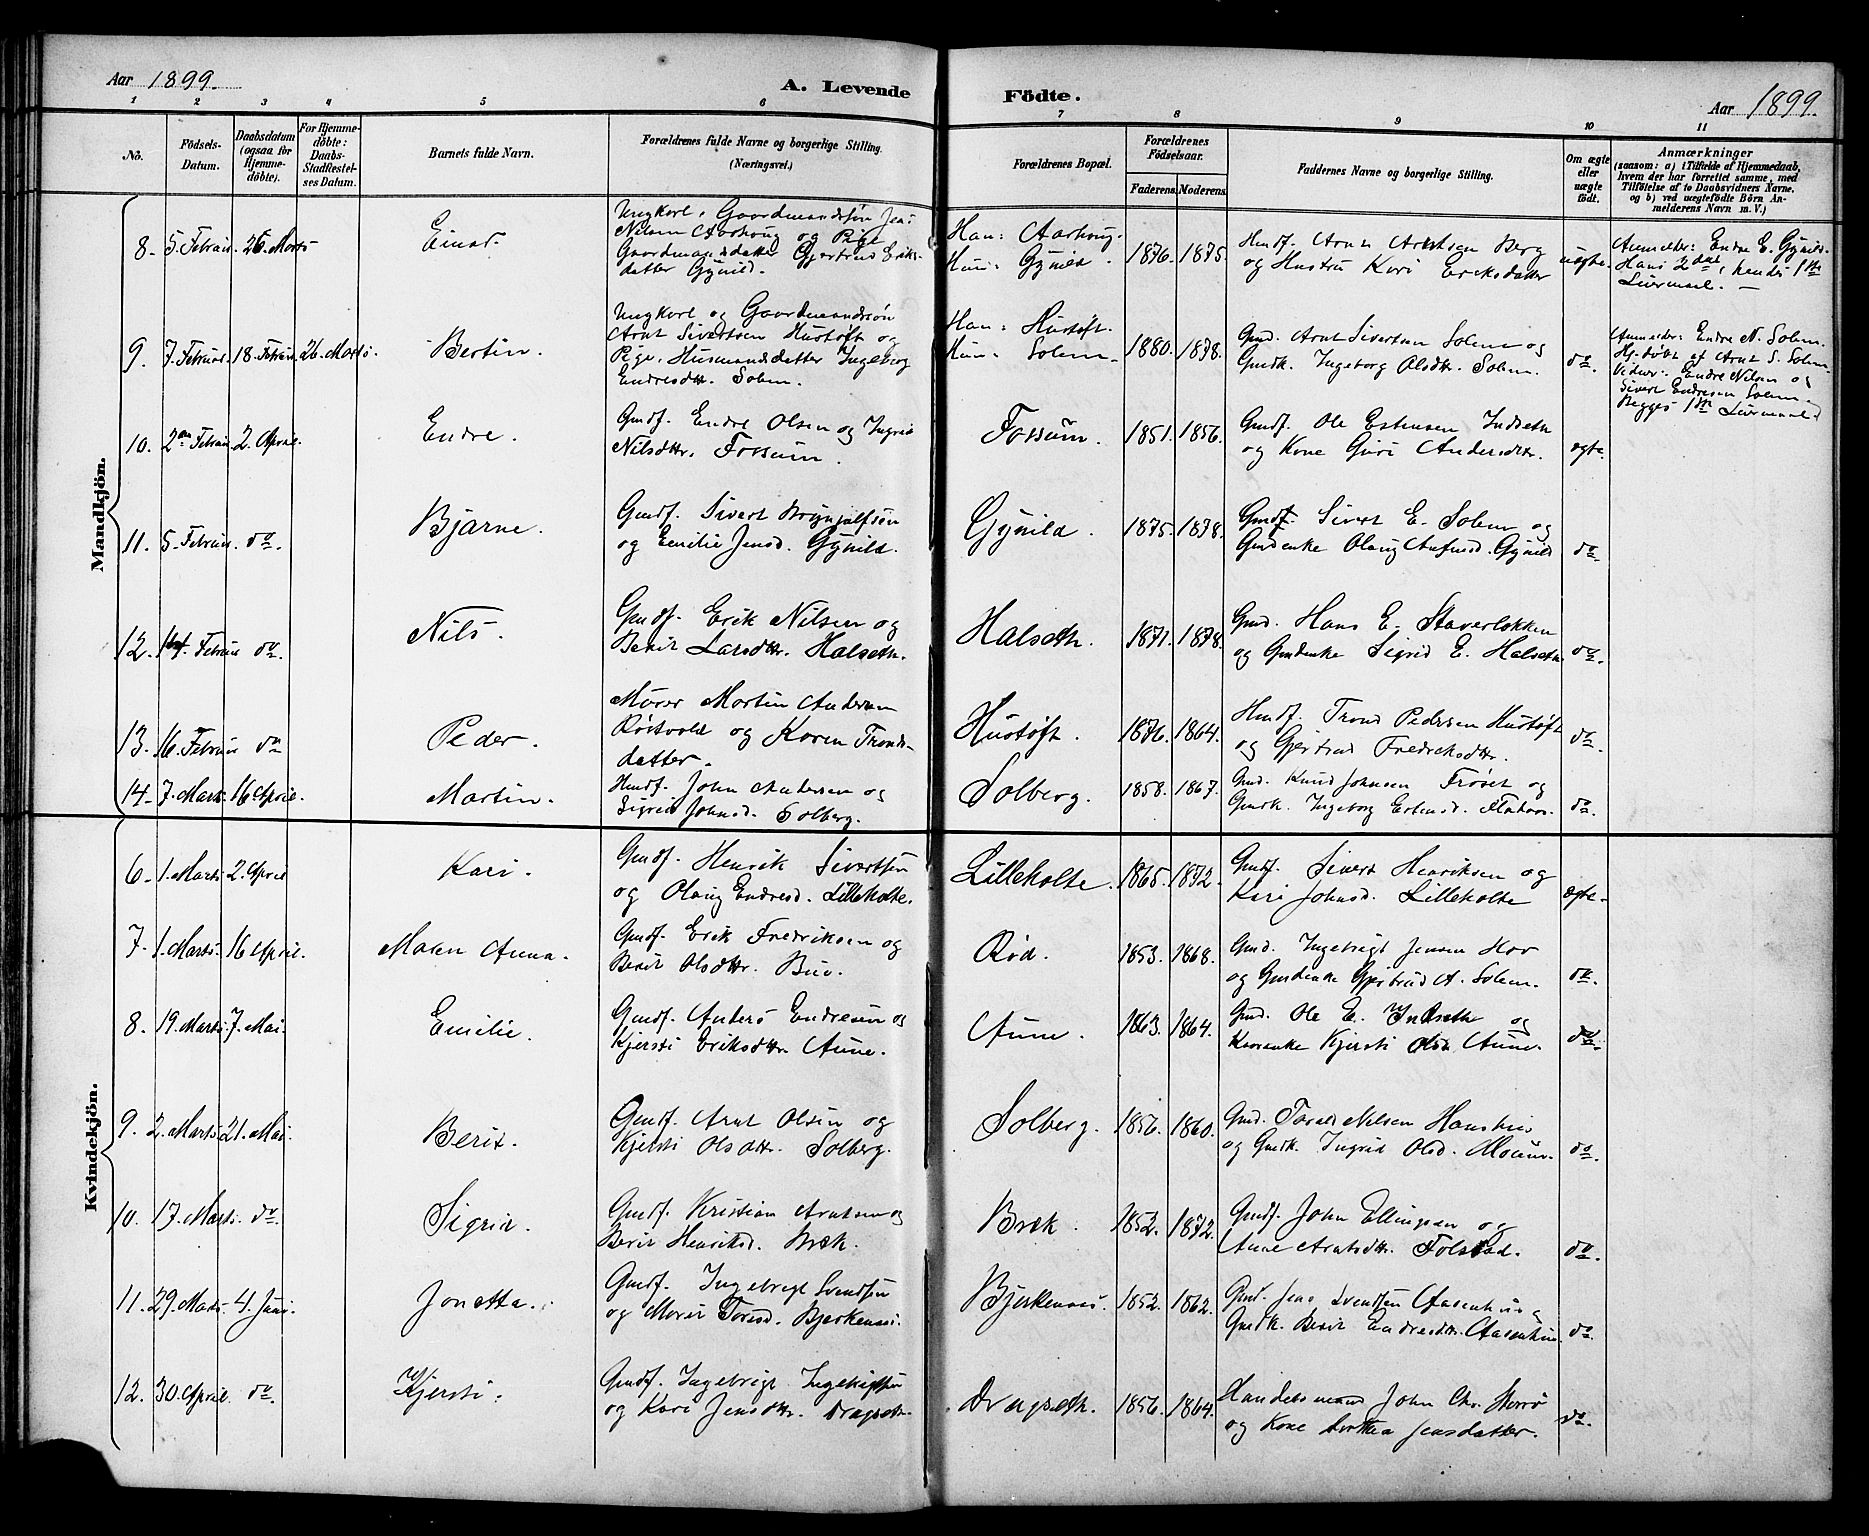 Aar 1899.
A. Levende Födte.
Aar 1899.
1 2 3 4 5 6 7 8 9 10 11
No.
Födsels-
Datum.
Daabsdatum
(ogsaa for
Hjemme-
döbte).
For Hjemme-
döbte:
Daabs-
Stadfestel-
ses Datum.
Barnets fulde Navn.
Forældrenes fulde Navne og borgerlige Stilling.
(Næringsvei.)
Forældrenes Bopæl.
Forældrenes
Födselsaar.
Faderens. Moderens.
Faddernes Navne og borgerlige Stilling.
Om ægte
eller
uægte
født.
Anmærkninger
(saasom: a) i Tilfælde af Hjemmedaab,
hvem der har forrettet samme, med
Tilföielse af to Daabsvidners Navne,
og b) ved uægtefödte Börn An-
melderens Navn m. V.)
Mandkjön.
8. 5. Februar. 26. Marts
Einar.
Ungkarl, Gaardmandssøn Jens
Nilsen Aarhaug og Pige
Gaardmandsdatter Gjertrud Eriks-
datter Gynild.
Han: Aarhaug.
Hun: Gynild.
1876. 1875.
Husmf. Arnt Arntsen Berg
og Hustru Kari Eriksdatter
uægte.
Anmelder: Endre E. Gynild.
Hans 2det, hendes 1ste
Leiermaal. —
9. 7. Februar. 18. Februar. 26. Marts.
Bertin.
Ungkarl og Gaardmandssøn
Arnt Sivertsen Hustøft og
Pige, Husmandsdatter Ingeborg
Endresdtr. Solem.
Han: Hustøft.
Hun: Solem.
1880. 1878.
Gmd. Arnt Sivertsen Solem og
Gmdk. Ingeborg Olsdtr. Solem.
do.
Anmelder: Endre N. Solem.
Hj. døbt af Arnt S. Solem.
Vidner: Endre Nilsen og
Sivert Endresen Solem.
Begges 1ste Leiermaal
10. 2. Februar 2. April.
Endre.
Gmdf. Endre Olsen og Ingrid
Nilsdtr. Fossum.
Fossum.
1851. 1856.
Gmdf. Ole Estensen Indseth
og Kone Guri Andersdtr.
ægte.
11. 5. Februar. do.
Bjarne.
Gmdf. Sivert Brynjulfsøn
og Emilie Jensd. Gynild.
Gynild.
1875. 1878.
Gmdf. Sivert E. Solem og
Gmdenke Olaug Anfinsd. Gynild
do.
12. 14. Februar do.
Nils.
Gmdf. Erik Nilsen og
Berit Larsdtr. Halseth.
Halseth.
1871. 1878.
Gmd. Hans E. Staverløkken
og Gmdenke Sigrid E. Halseth.
do.
13. 16. Februar do
Peder.
Murer Martin Andersen
Røstvold og Karen Tronds-
datter.
Hustøft.
1876. 1864.
Husmf. Trond Pedersen Hustøft
og Gjertrud Fredriksdtr.
do.
14. 7. Marts. 16 April.
Martin.
Husmf. John Andersen og
Sigrid Johnsd. Solberg.
Solberg.
1858. 1867.
Gmd. Knud Johnsen Frøset og
Gmdk. Ingeborg Estensd.
do.
Kvindekjön.
6. 1. Marts 2. April
Kari.
Gmdf. Henrik Sivertsen
og Olaug Endresd. Lilleholte.
Lilleholte.
1865. 1872.
Gmdf. Sivert Henriksen og
Kari Johnsd. Lilleholte
ægte.
7. 1. Marts. 16 April.
Maren Anna.
Gmdf. Erik Fredriksen og
Berit Olsdtr. Buo.
Rød.
1853. 1868.
Gmd. Ingebrigt Jensen Hov
og Gmdenke Gjertrud A. Solem.
do.
8. 19. Marts. 7. Mai.
Emilie.
Gmdf. Anders Endresen og
Kjersti Eriksdtr. Aune.
Aune.
1863. 1864.
Gmd. Ole E. Indseth og
Kaarenke Kjersti Olsd. Aune.
do.
9. 2. Marts. 21. Mai.
Berit.
Gmdf. Arnt Olsen og
Kjersti Olsdtr. Solberg.
Solberg.
1856. 1860.
Gmd. Nilsen
og Gmdk. Ingrid Olsd.
do.
10. 17. Marts. do.
Sigrid.
Gmdf. Kristian Arntsen og
Berit Henriksd. Bræk.
Bræk.
1852. 1872.
Gmdf. John Ellingsen og
Anne Arntsdtr. Folstad.
do.
11. 29. Marts. 4. Juni.
Jonetta.
Gmdf. Ingebrigt Svendsen
og Marit Toresd. Bjerkenæs.
Bjerkenæs.
1852. 1862.
Gmd. Jens Svendsen Aasenhus og
Gmdk. Berit Endresdtr. Aasenhus
do.
12. 30. April. do.
Kjersti.
Gmdf. Ingebrigt Ingebrigtsen
og Kari Jensdtr. Dragseth.
Dragseth.
1856. 1864.
Handelsmand John Chr. Horrø
og Kone Dorthea Jensdatter.
do.